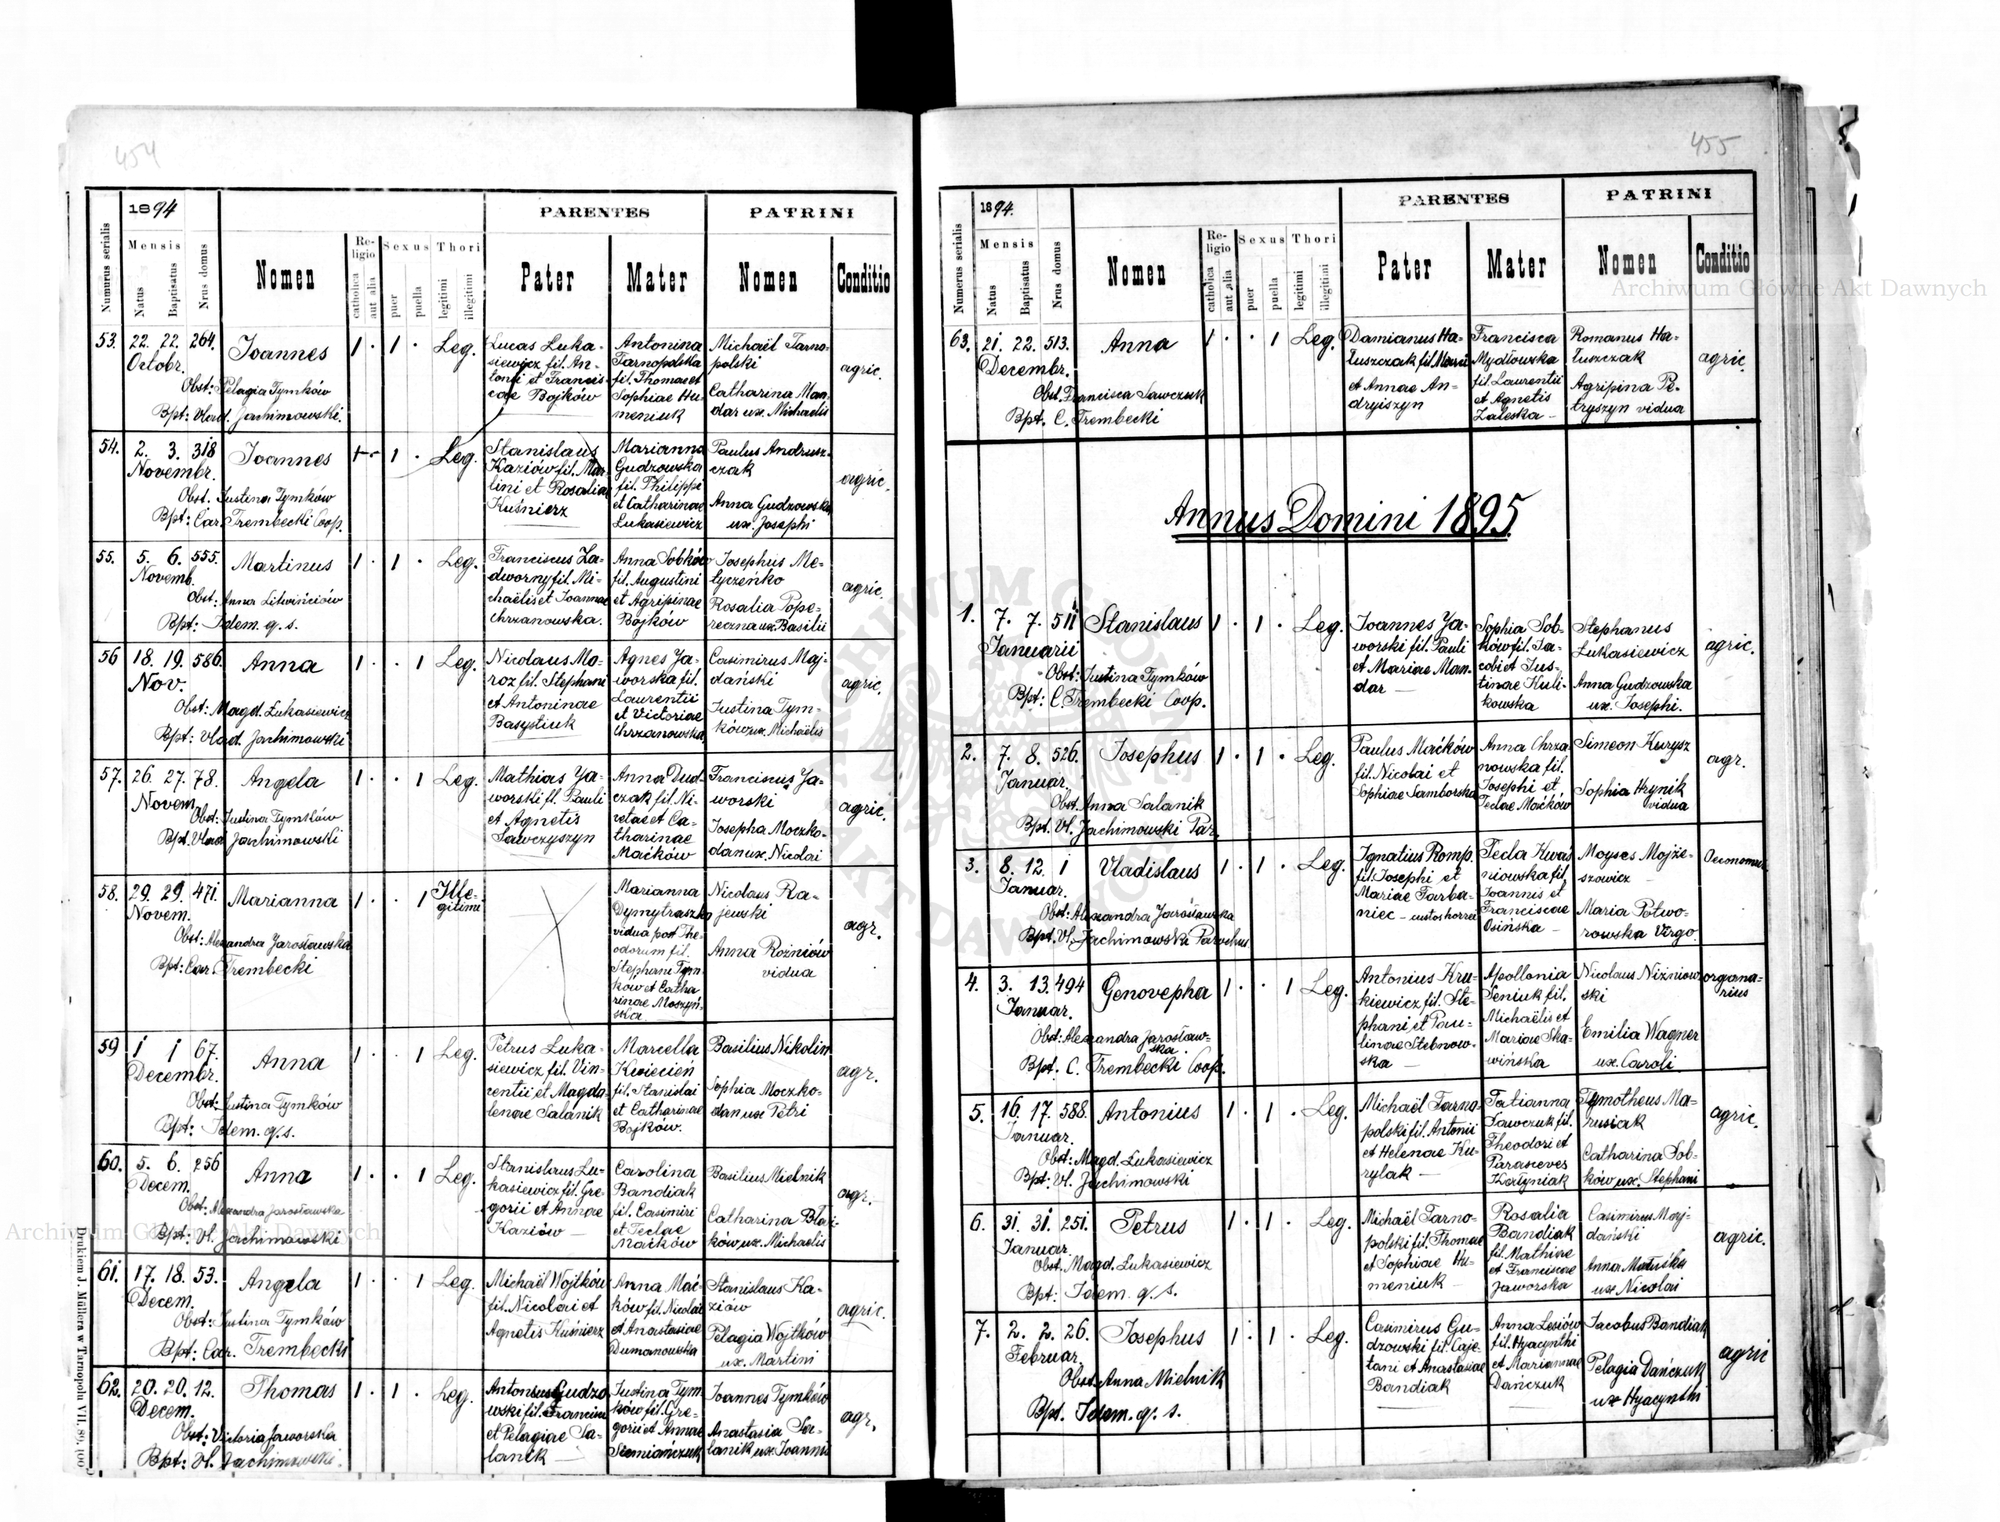 454
1894
PARENTES
PATRINI
Numerus serialis
Mensis
Natus
Baptisatus
Nrus domus
Nomen
Religio
catholica
aut alia
Sexus
puer
puella
Thori
legitimi
illegitimi
Pater
Mater
Nomen
Conditio
53. 22. 22. 264. Joannes 1 . 1 . Leg.
Octobr.
Obst: Pelagia Tymków
Bpt: Vlad. Jachimowski.
Lucas Luka-
siewicz fil. An-
tonii et Francis-
cae Bojków
Antonina
Tarnopolska
fil. Thomae et
Sophiae Hu
meniuk
Michaël Tarno-
polski
Catharina Man
dar ux. Michaelis
agric.
54. 2. 3. 318 Joannes 1 . 1 . Leg.
Novembr.
Obst. Justina Tymków
Bpt: Car. Trembecki Coop.
Stanislaus
Kaziów fil. Mar
tini et Rosaliae
Kuśnierz
Marianna
Gudzowska
fil. Philippi
et Catharinae
Lukasiewicz
Paulus Andrusz-
czak
Anna Gudzowska
ux. Josephi
agric.
55. 5. 6. 555. Martinus 1 . 1 . Leg.
Novemb.
Obst: Anna Litwińciów
Bpt: Idem. q. s.
Franciscus Za-
dworny fil. Mi-
chaëlis et Joannae
Chrzanowska.
Anna Sobków
fil. Augustini
et Agripinae
Bojków
Josephus Me-
tyczeńko
Rosalia Pope-
reczna ux. Basilii
agric.
56 18. 19. 586. Anna 1 . . 1 Leg.
Nov.
Obst: Magd. Łukasiewicz
Bpt: Vlad. Jachimowski
Nicolaus Mo-
roz fil. Stephani
et Antoninae
Basystiuk
Agnes Ja-
worska fil.
Laurentii
et Victoriae
Chrzanowska
Casimirus Maj-
dański
Justina Tym-
ków ux. Michaëlis
agric.
57. 26. 27. 78. Angela 1 . . 1 Leg.
Novem.
Obst: Justina Tymków
Bpt: Vlad Jachimowski
Mathias Ja-
worski fl. Pauli
et Agnetis
Sawczyszyn
Anna Dud-
czak fil. Ni-
cetae et Ca-
tharinae
Maćków
Franciscus Ja-
worski
Josepha Moczko-
dan ux. Nicolai
agric.
58. 29. 29. 471. Marianna 1 . . 1 Ille-
gitimi
Novem.
Obst: Alexandra Jarosławska
Bpt: Car. Trembecki
Marianna
Dymytraszko
vidua post The-
odorum fil.
Stephani Tym
ków et Catha
rinae Moszyń-
ska.
Nicolaus Ra-
jewski
Anna Rożniów
vidua
agr.
59 1 1 67. Anna 1 . . 1 Leg.
Decembr.
Obst: Justina Tymków
Bpt: Idem. q. s.
Petrus Luka-
siewicz fil. Vin-
centii et Magda-
lenae Salanik
Marcella
Kwiecień
fil. Stanislai
et Catharinae
Bojków.
Basilius Nikolin
Sophia Moczko-
dan ux Petri
agr.
60. 5. 6. 256 Anna 1 . . 1 Leg.
Decem.
Obst: Alexandra Jarosławska
Bpt: Vl. Jachimowski
Stanislaus Lu-
kasiewicz fil. Gre-
gorii et Annae
Kaziów
Carolina
Bandiak
fil. Casimiri
et Teclae
Maćków
Basilius Mielnik
Catharina Błaż-
ków ux. Michaelis
agr.
61. 17. 18. 53. Angela 1 . . 1 Leg.
Decem.
Obst: Justina Tymków
Bpt: Car. Trembecki
Michaël Wojtków
fil. Nicolai et
Agnetis Kuśnierz
Anna Mać-
ków fil. Nicolai
et Anastasiae
Dumanowska
Stanislaus Ka-
ziów
Pelagia Wojtków
ux. Martini
agric.
62. 20. 20. 12. Thomas 1 . 1 . Leg.
Decem.
Obst: Victoria Jaworska
Bpt: Vl. Jachimowski.
Antonius Gudzo
wski fil. Francisci
et Pelagiae Sa-
lanik
Justina Tym
ków fil. Gre-
gorii et Annae
Siemiańczuk
Joannes Tymków
Anastasia Sa-
lanik ux. Joannis
agr.
Drukiem J. Müllera w Tarnopolu
455
1894.
PARENTES
PATRINI
Numerus serialis
Mensis
Natus
Baptisatus
Nrus domus
Nomen
Religio
catholica
aut alia
Sexus
puer
puella
Thori
legitimi
illegitimi
Pater
Mater
Nomen
Conditio
63. 21. 22. 513. Anna 1 . . 1 Leg.
Decembr.
Obst. Francisca Sawczuk
Bpt. C. Trembecki
Damianus Ha-
łuszczak fil. Marci
et Annae An-
dryiszyn
Francisca
Mydłowska
fil. Laurentii
et Agnetis
Zaleska
Romanus Ha-
łuszczak
Agripina Pe-
tryszyn vidua
agric.
Annus Domini 1895.
1. 7. 7. 511 Stanislaus 1 . 1 . Leg.
Januarii
Obst: Justina Tymków
Bpt: C. Trembecki Coop.
Joannes Ja-
worski fil. Pauli
et Mariae Man-
dar
Sophia Sob-
ków fil. Ja-
cobi et Jus-
tinae Kuli-
kowska
Stephanus
Łukasiewicz
Anna Gudzowska
ux. Josephi.
agric.
2. 7. 8. 526. Josephus 1 . 1 . Leg.
Januar.
Obst. Anna Salanik
Bpt. Vl. Jachimowski Par.
Paulus Maćków
fil. Nicolai et
Sophiae Samborska
Anna Chrza
nowska fil.
Josephi et
Teclae Maćków
Simeon Kurysz
Sophia Hrynik
vidua
agr.
3. 8. 12. 1 Vladislaus 1 . 1 . Leg.
Januar.
Obst: Alexandra Jarosławska
Bpt. Vl. Jachimowski Parochus
Ignatius Romp.
fil. Josephi et
Mariae Tarba-
niec - custos horrei
Tecla Kwaś
niowska fil.
Joannis et
Franciscae
Osińska
Moyses Mojże-
szowicz
Maria Potwo-
rowska Virgo.
4. 3. 13. 494 Genovepha 1 . . 1 Leg.
Januar.
Obst: Alexandra Jarosław-
ska.
Bpt. C. Trembecki Coop.
Antonius Kru-
kiewicz fil. Ste-
phani et Pau-
linae Stebnow-
ska
Apollonia
Seniuk fil.
Michaëlis et
Mariae Ska-
wińska
Nicolaus Niżniow-
ski
Emilia Wagner
ux. Caroli
organa-
rius
5. 16. 17. 588. Antonius 1 . 1 . Leg.
Januar.
Obst: Magd. Łukasiewicz
Bpt: Vl. Jachimowski
Michaël Tarno-
polski fil. Antonii
et Helenae Ku-
rylak
Tatianna
Sawczuk fil.
Theodori et
Parasceves
Kertyniak
Tymotheus Ma-
rusiak
Catharina Sob-
ków ux. Stephani
agric.
6. 31. 31. 251. Petrus 1 . 1 . Leg.
Januar.
Obst. Magd. Łukasiewicz
Bpt: Idem. q. s.
Michaël Tarno-
polski fil. Thomae
et Sophiae Hu-
meniuk
Rosalia
Bandiak
fil. Mathiae
et Franciscae
Jaworska
Casimirus Maj-
dański
Anna
ux Nicolai
agric.
7. 2. 2. 26. Josephus 1 . 1 . Leg.
Februar.
Obst. Anna Mielnik
Bpt. Idem. q. s.
Casimirus Gu-
dzowski fil. Caje-
tani et Anastasiae
Bandiak
Anna Lesiów
fil. Hyacynthi
et Mariannae
Dańczuk
Jacobus Bandiak
Pelagia Dańczuk
ux Hyacynthi
agric
Archiwum Główne Akt Dawnych
Archiwum Główne Akt Dawnych
ARCHIWUM GŁÓWNE AKT DAWNYCH